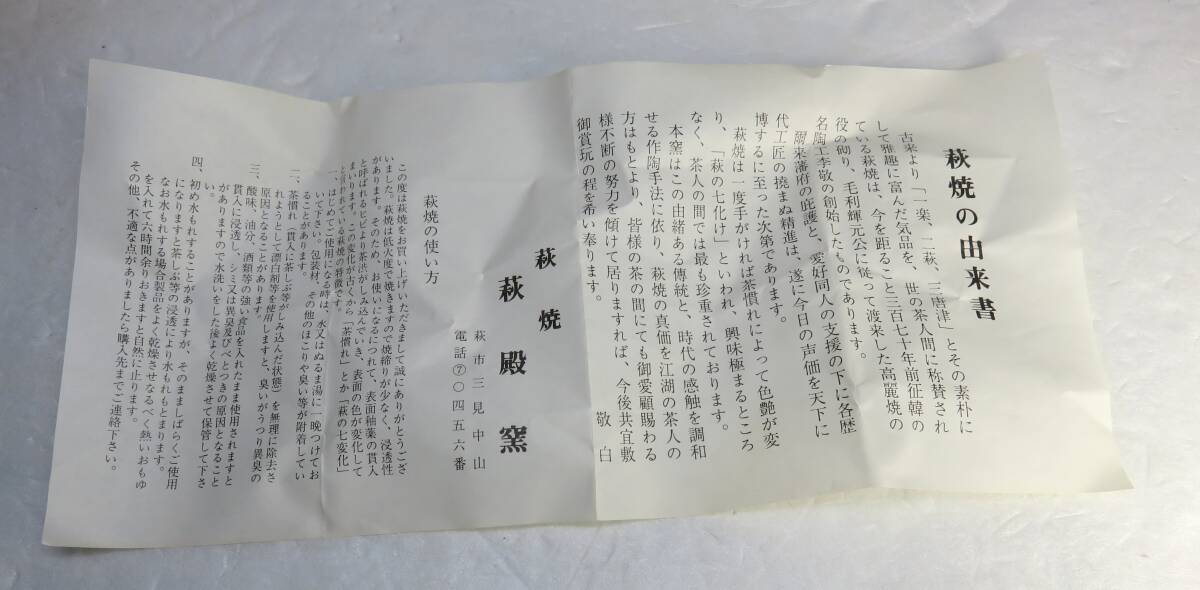 萩焼の由来書
古来より「一楽、二萩、三唐津」とその素朴に
して雅趣に富んだ気品を、世の茶人間に称賛され
ている萩焼は、今を距ること三百七十年前征韓の
役の砌り、毛利輝元公に従って渡来した高麗焼の
名陶工李敬の創始したものであります。
爾来藩府の庇護と、愛好同人の支援の下に各歴
代工匠の撓まぬ精進は、遂に今日の声価を天下に
博するに至った次第であります。
萩焼は一度手がければ茶慣れによって色艶が変
り、「萩の七化け」といわれ、興味極まるところ
なく、茶人の間では最も珍重されております。
本窯はこの由緒ある傳統と、時代の感触を調和
せる作陶手法に依り、萩焼の真価を江湖の茶人の
方はもとより、皆様の茶の間にても御愛顧賜わる
様不断の努力を傾けて居りますれば、今後共宜敷
御賞玩の程を希い奉ります。
敬白
萩焼
萩殿窯
萩市三見中山
電話⑦〇四五六番
萩焼の使い方
この度は萩焼をお買い上げいただきまして誠にありがとうござ
いました。萩焼は低火度で焼きますので焼締りが少なく、浸透性
があります。そのため、お使いになるにつれて、表面釉薬の貫入
と呼ばれるヒビより茶渋がしみ込んでいき、表面の色が変化して
まいります。この変化が古くから「茶慣れ」とか「萩の七変化」
と呼ばれている萩焼の特徴です。
一、はじめてご使用になる時は、水又はぬるま湯に一晩つけてお
いて下さい。包装材、その他のほこりや臭い等が附着してい
ることがあります。
二、茶慣れ(貫入に茶しぶ等がしみ込んだ状態)を無理に除去さ
れようとして漂白剤等を使用しますと、臭いがうつり異臭の
原因となることがあります。
三、酸味、油分、酒類等の強い食品を入れたまま使用されますと
貫入に浸透し、シミ又は異臭及びべとつきの原因となること
がありますので水洗いをした後よく乾燥させて保管して下さ
い。
四、初め水もれすることがありますが、そのまましばらくご使用
になりますと茶しぶ等の浸透により水もれもとまります。
なお水もれする場合製品をよく乾燥させなるべく熱いおもゆ
を入れて六時間余りおきますと自然に止ります。
その他、不適な点がありましたら購入先までご連絡下さい。